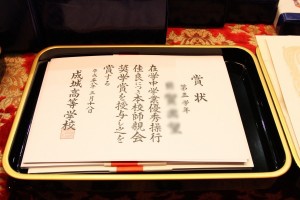 賞状
第五学年
在学中学業優秀操行
佳良につき本校師親会
奨学賞を授与しこれを
賞する
成城高等学校